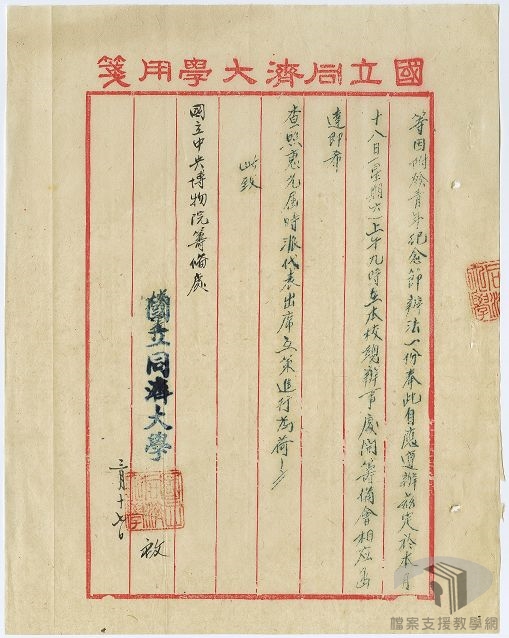 國立同濟大學用箋
等因附發青年紀念節辦法一份奉此自應遵辦茲定於本月
十八日(星期六)上午九時在本校總辦事處開籌備會相應函
達即希
查照惠允屆時派代表出席共策進行為荷
此致
國立中央博物院籌備處
國立同濟大學 啟
三月十七日
檔案支援教學網